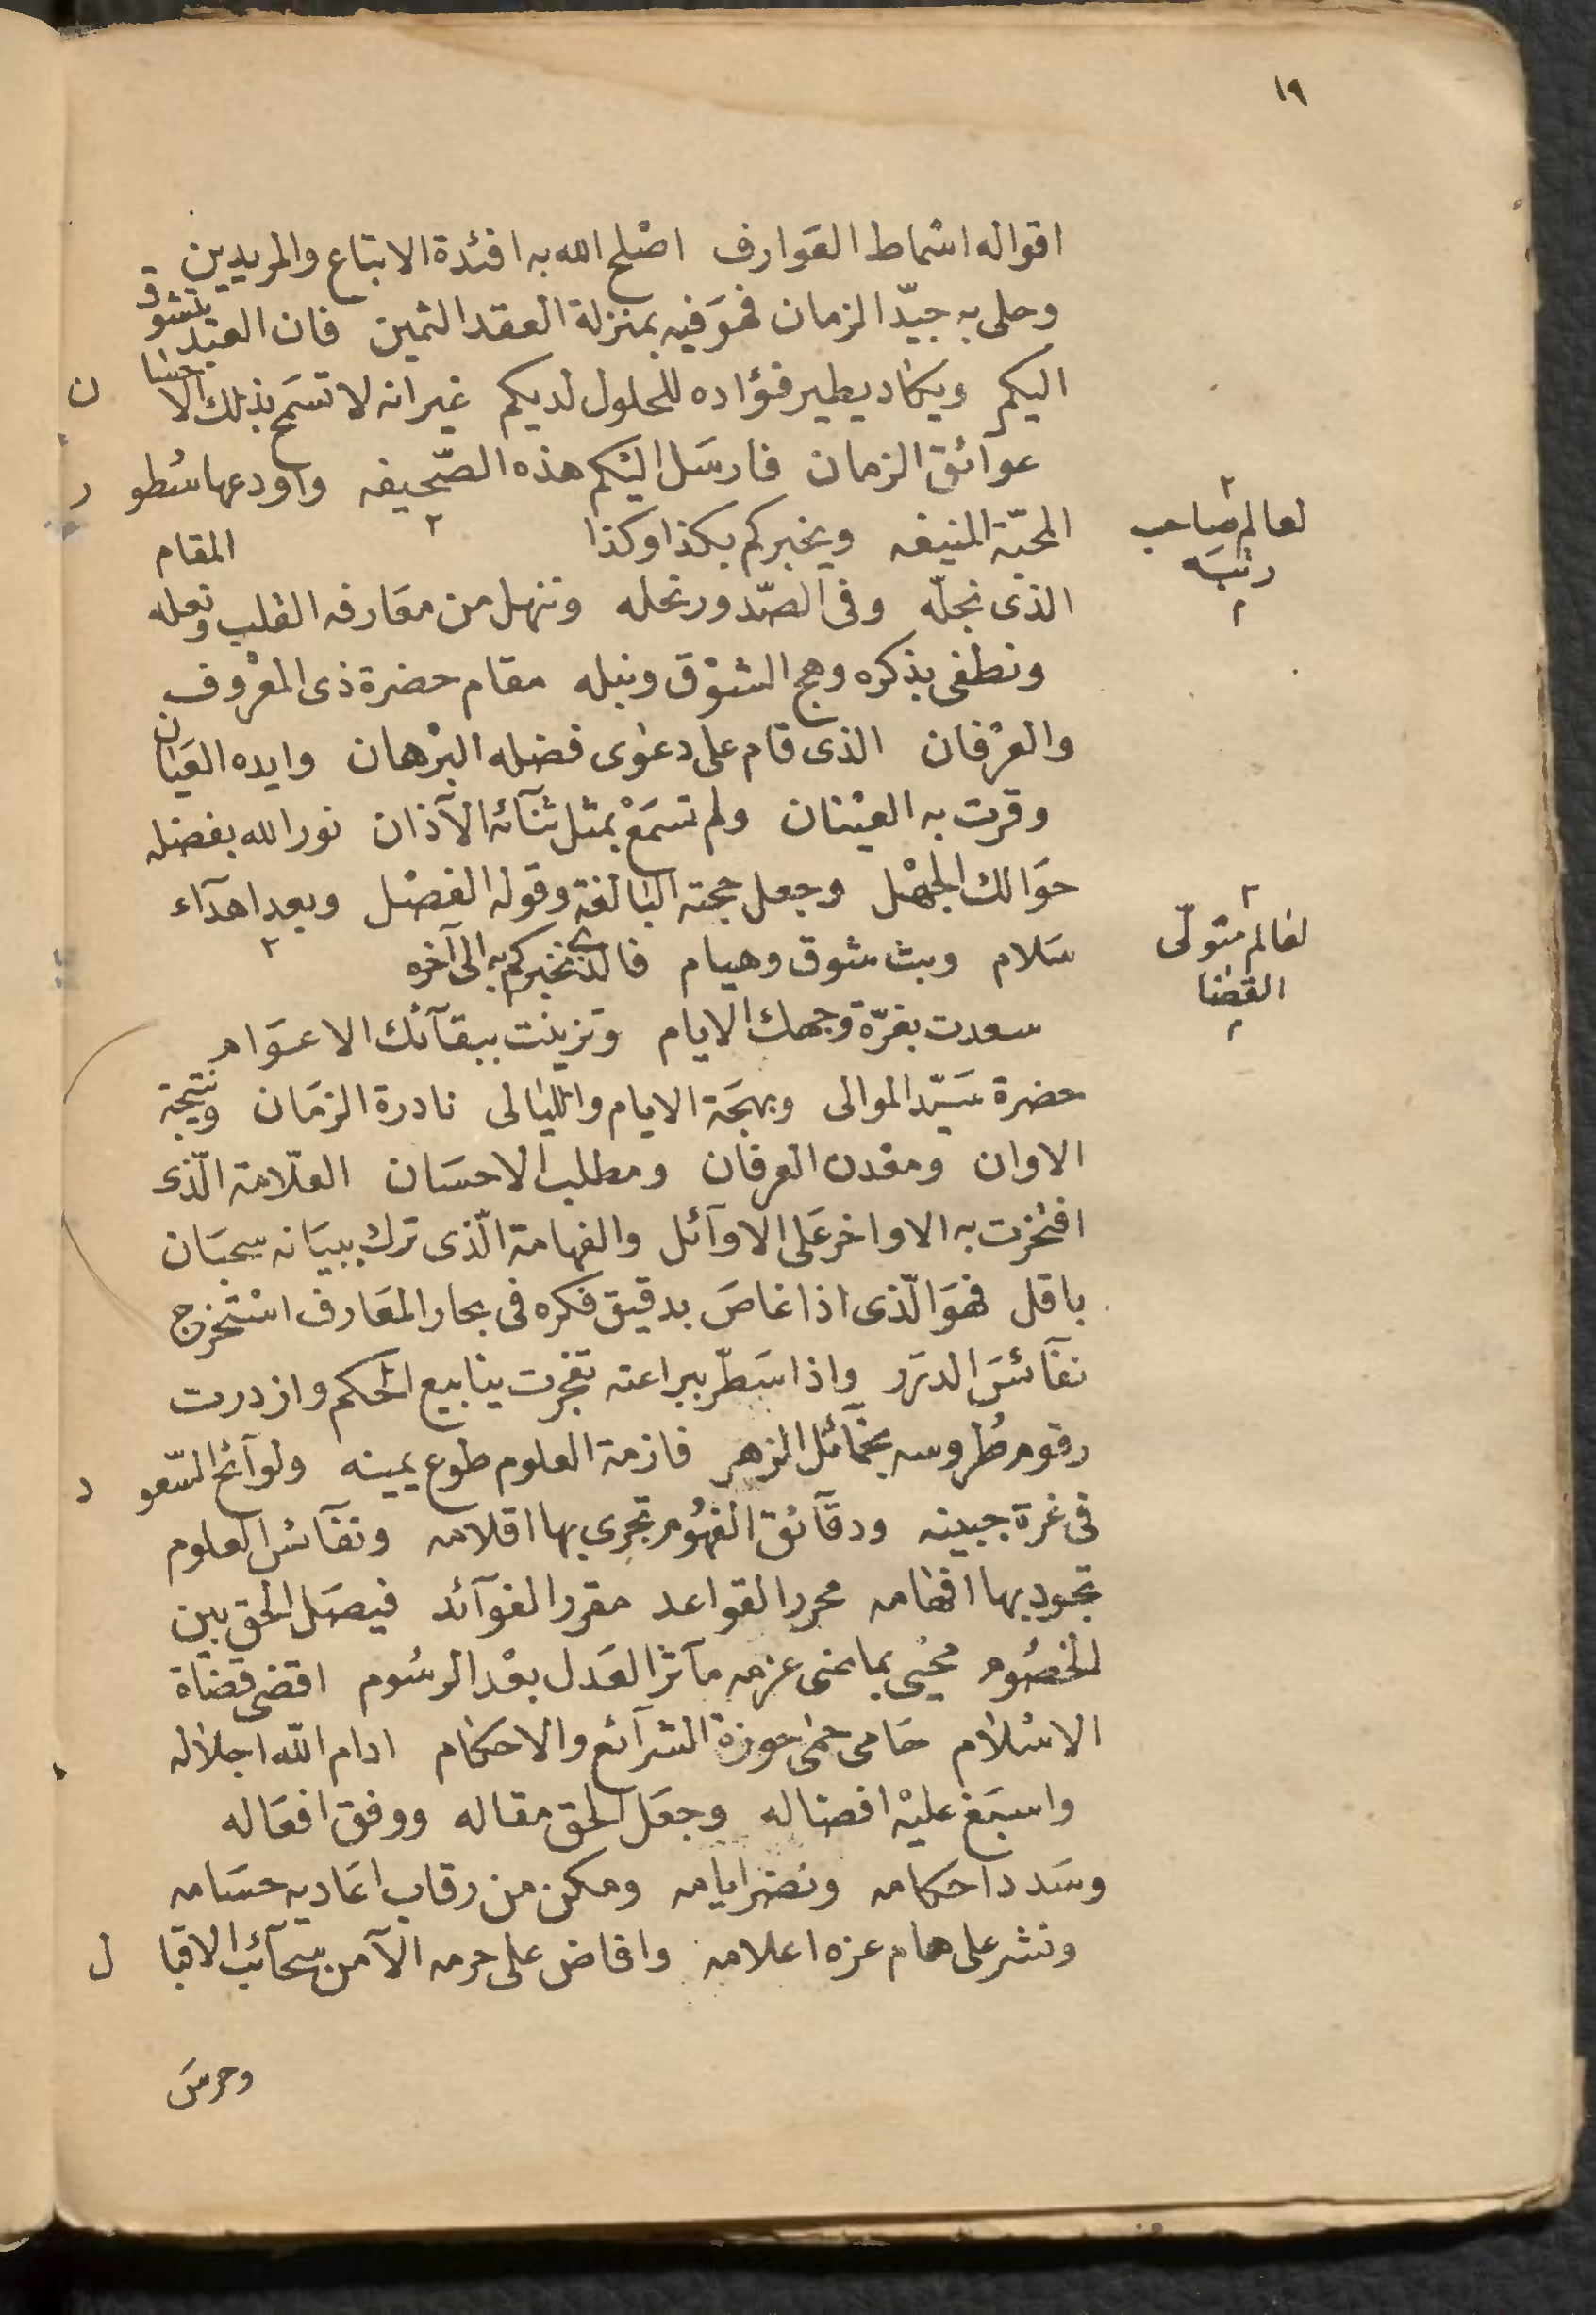 ١٩
اقواله اسماط العوارف اصلح الله به افئدة الاتباع والمريدين
وحلى به جيّد الزمان فهو فيه بمنزلة العقد الثمين فان العبد يتشوق
اليكم ويكاد يطير فؤاده للحلول لديكم غير انه لا تسمح بذلك الاحسان
عوآئق الزمان فارسل اليكم هذه الصّحيفه واودعها سُطور
المحبّة المنيفه ويخبركم بكذا وكذا المقام
لعالم صاحب
رتبه
الذى نجلّه وفى الصّدور نحله وننهل من معارفه القلب ونعله
ونطفى بذكره وهج الشوْق ونبله مقام حضرة ذى المعْروف
والعرْفان الذى قام على دعوى فضله البرْهان وايده العيان
وقرت به العيْنان ولم تسمَعْ بمثل ثنآئه الآذان نور الله بفضله
حوالك الجهْل وجعل حجته البالغة وقوله الفصْل وبعد اهدآء
سلام وبث شوق وهيام فالذى نخبركم به الى آخره
لعالم متولّى
القضا
سعدت بغرّة وجهك الايام وتزينت ببقآئك الاعوام
حضرة سَيّد الموالى وبهجَة الايام والليالى نادرة الزمَان ونتيجة
الاوان ومعْدن العرفان ومطلب الاحسَان العلّامة الّذى
افتخرت به الاواخر عَلى الاوآئل والفهامة الّذى ترك ببيَانه سحبَان
باقل فهوَ الّذى اذا غاصَ بدقيق فكره فى بحار المعَارف اسْتخرج
نفآئسَ الدرَر واذا سَطّر ببراعته تفجرت ينابيع الحكم وازدرت
رقوم طُروسه بخمآئل الزهر فازمة العلوم طوع يمينه ولوآئح السّعود
فى غرة جبينه ودقآئق الفهُوم تجرى بها اقلامه ونفآئس العلوم
تجود بها افهامه محرر القواعد مقرر الفوآئد فيصَل الحق بين
الخصُوم محْيى بما ضى عزمه مآثر العَدل بعْد الرسُوم اقضى قضاة
الاسْلام حَامى حمَى حوزة الشرآئع والاحكام ادام الله اجلاله
واسبَغ عليْه افضاله وجعَل الحق مقاله ووفق افعَاله
وسَدد احكامه ونضر ايامه ومكن من رقاب اعَاديه حسَامه
ونشر على هام عزه اعلامه وافاض على حرمه الآمن سَحآئب الاقبال
وحرسَ